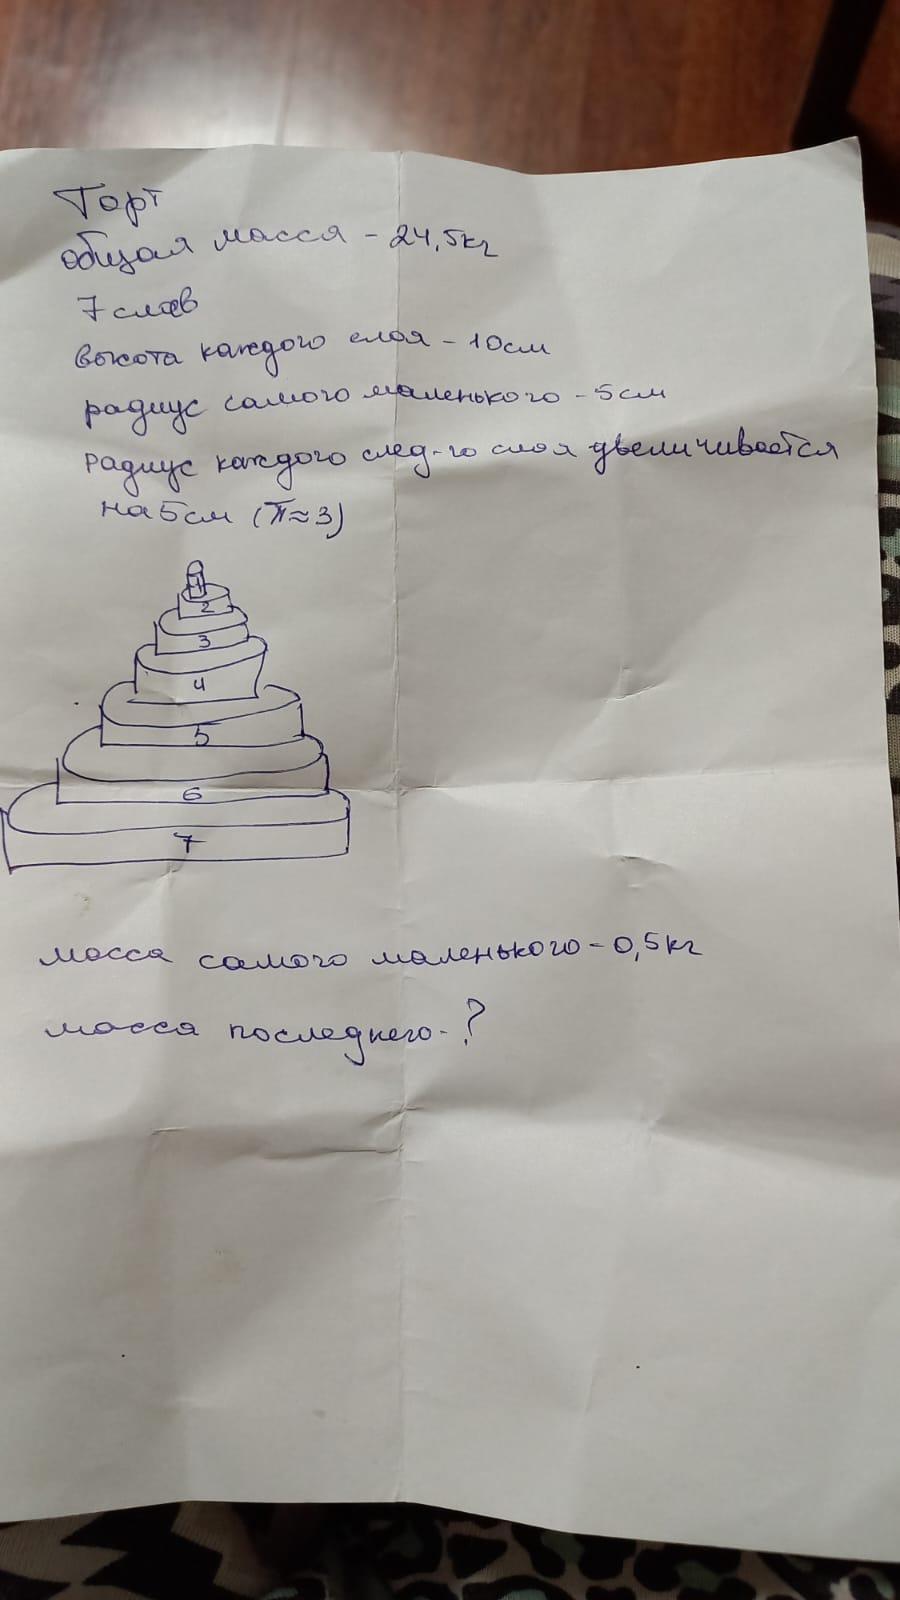 Торт
общая масса - 24,5кг
7 слоёв
высота каждого слоя - 10см
радиус самого маленького - 5см
радиус каждого след-го слоя увеличивается
на 5см (π≈3)
1
2
3
4
5
6
7
масса самого маленького - 0,5кг
масса последнего - ?